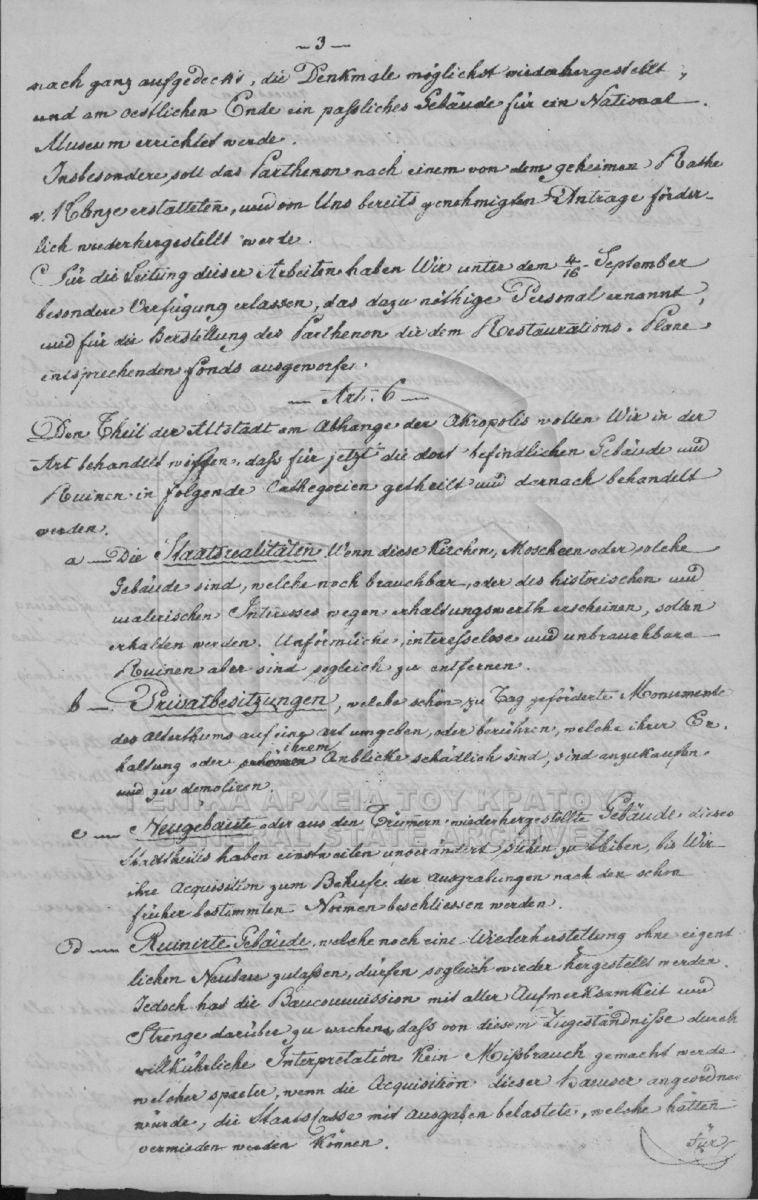 – 3 –
nach ganz aufgedeckt, die Denkmale möglichst wiederhergestellt,
und am oestlichen Ende ein paßliches Gebäude für ein National
Museum errichtet werde.
Insbesondere soll das Parthenon nach einem von dem geheimen Rathe
v. Klenze erstatteten, und von Uns bereits genehmigten Antrage förder-
lich wiederhergestellt werde.
Für die Leitung dieser Arbeiten haben Wir unter dem 4/16 September
besondere Verfügung erlassen, das dazu nöthige Personal ernannt,
und für die Herstellung des Parthenon die dem Restaurations-Plane
entsprechenden Fonds ausgeworfen.
— Art. 6 —
Den Theil der Altstadt am Abhange der Akropolis wollen Wir in der
Art behandelt wissen, daß für jetzt die dort befindlichen Gebäude und
Ruinen in folgende Cathegorien getheilt und darnach behandelt
werden.
a — Die Staatsrealitäten. Wenn diese Kirchen, Moscheen oder solche
Gebäude sind, welche noch brauchbar, oder des historischen und
malerischen Interesses wegen erhaltungswerth erscheinen, sollen
erhalten werden. Unförmliche, interesselose und unbrauchbare
Ruinen aber sind sogleich zu entfernen.
b — Privatbesitzungen, welche schon zu Tag geförderte Monumente
des Alterthums auf eine Art umgeben, oder berühren, welche ihrer Er-
haltung oder ihrem Anblicke schädlich sind, sind anzukaufen
und zu demoliren.
c — Neugebaute oder aus den Trümern wiederhergestellte Gebäude dieses
Stadttheils haben einstweilen unverändert stehen zu bleiben, bis Wir
ihre Acquisition zum Behufe der Ausgrabungen nach den schon
früher bestimmten Normen beschliessen werden.
d — Ruinirte Gebäude, welche noch eine Wiederherstellung ohne eigent
lichen Neubau zulaßen, dürfen sogleich wieder hergestellt werden.
Jedoch hat die Baucommission mit aller Aufmerksamkeit und
Strenge darüber zu wachen, daß von diesem Zugeständniße durch
willkührliche Interpretation kein Mißbrauch gemacht werde
welcher spaeter, wenn die Acquisition dieser Haeuser angeordnet
würde, die Staats Casse mit Ausgaben belastete, welche hätten
vermieden werden können.
Für
ΓΕΝΙΚΑ ΑΡΧΕΙΑ ΤΟΥ ΚΡΑΤΟΥΣ
GENERAL STATE ARCHIVES